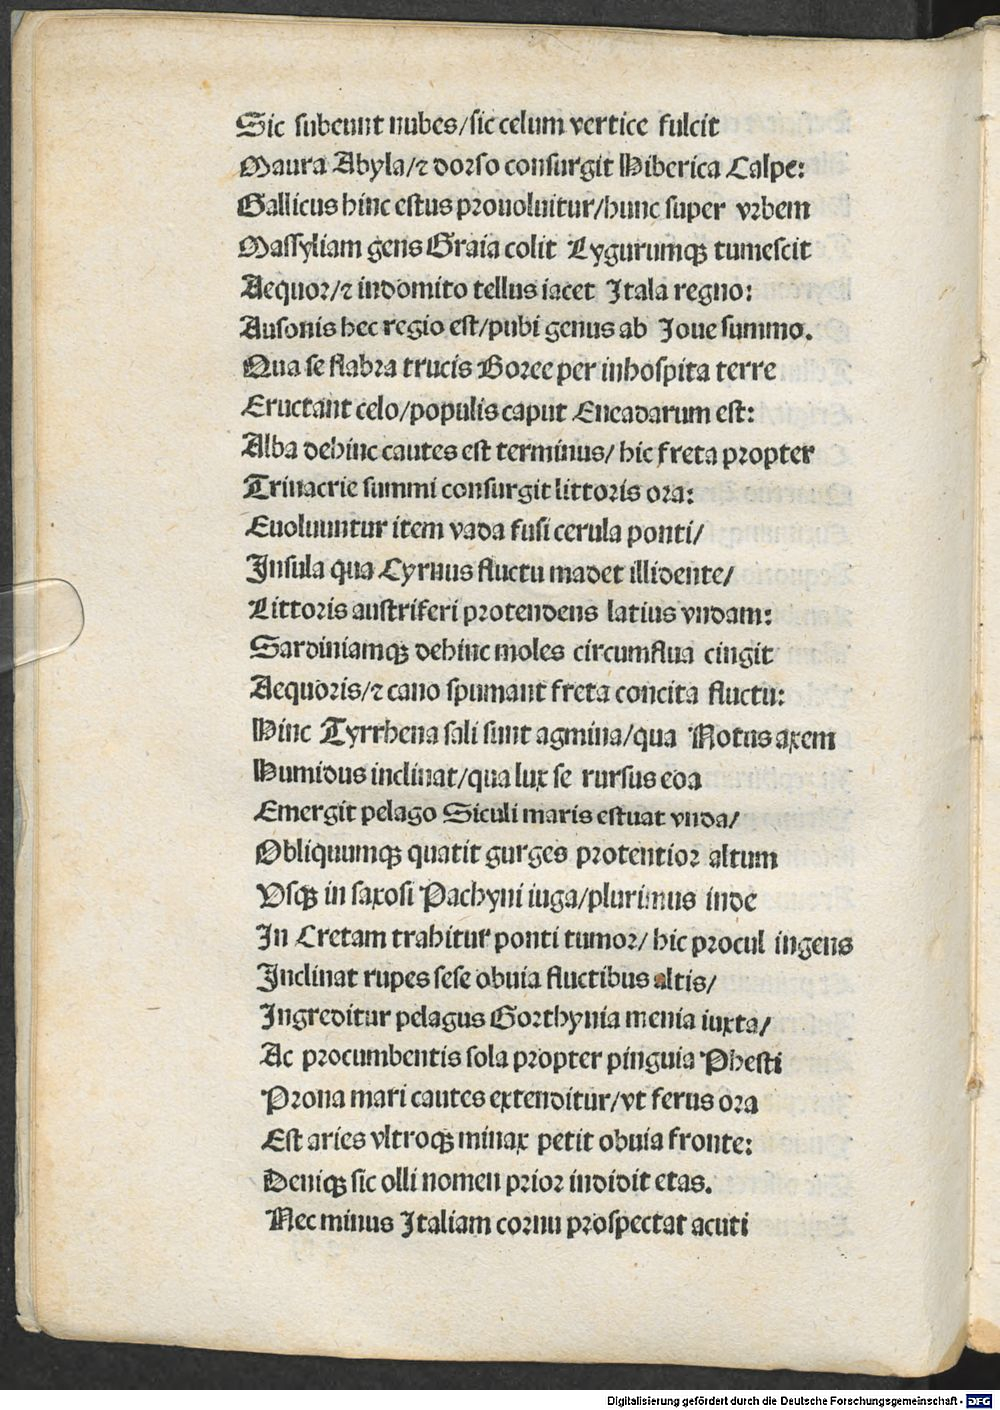 Sic subeunt nubes/sic celum vertice fulcit
Maura Abyla/⁊ dorso consurgit Hiberica Calpe:
Gallicus hinc estus prouoluitur/hunc super vrbem
Massyliam gens Graia colit Lygurumqꝫ tumescit
Aequor/⁊ indomito tellus iacet Itala regno:
Ausonis hec regio est/pubi genus ab Ioue summo.
Qua se flabra trucis Boree per inhospita terre
Eructant celo/populis caput Eneadarum est:
Alba dehinc cautes est terminus/ hic freta propter
Trinacrie summi consurgit littoris ora:
Euoluuntur item vada fusi cerula ponti/
Insula qua Cyrnus fluctu madet illidente/
Littoris austriferi protendens latius vndam:
Sardiniamqꝫ dehinc moles circumflua cingit
Aequoris/⁊ cano spumant freta concita fluctu:
Hinc Tyrrhena sali sunt agmina/qua Notus axem
Humidus inclinat/qua lux se rursus eoa
Emergit pelago Siculi maris estuat vnda/
Obliquumqꝫ quatit gurges protentior altum
Vsqꝫ in saxosi Pachyni iuga/plurimus inde
In Cretam trahitur ponti tumor/ hic procul ingens
Inclinat rupes sese obuia fluctibus altis/
Ingreditur pelagus Gorthynia menia iuxta/
Ac procumbentis sola propter pinguia Phesti
Prona mari cautes extenditur/vt ferus ora
Est aries vltroqꝫ minax petit obuia fronte:
Deniqꝫ sic olli nomen prior indidit etas.
Nec minus Italiam cornu prospectat acuti
Digitalisierung gefördert durch die Deutsche Forschungsgemeinschaft - DFG